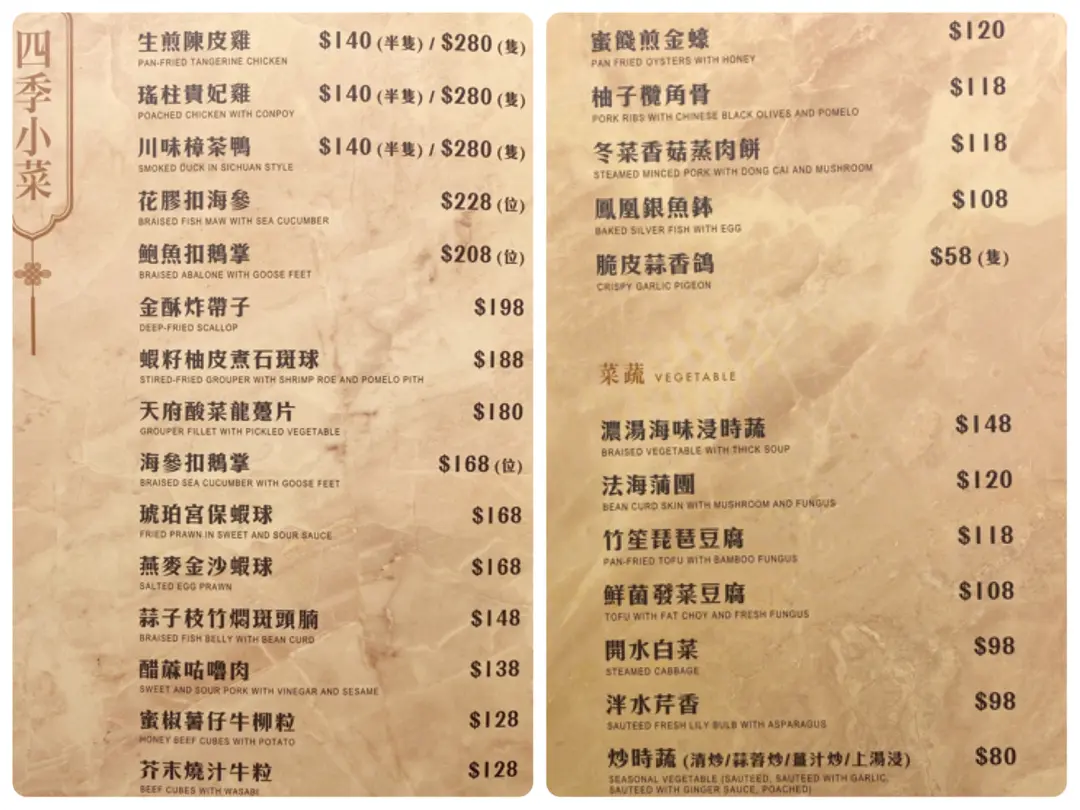 四季小菜
生煎陳皮雞 $140 (半隻) / $280 (隻)
PAN-FRIED TANGERINE CHICKEN
瑤柱貴妃雞 $140 (半隻) / $280 (隻)
POACHED CHICKEN WITH CONPOY
川味樟茶鴨 $140 (半隻) / $280 (隻)
SMOKED DUCK IN SICHUAN STYLE
花膠扣海參 $228 (位)
BRAISED FISH MAW WITH SEA CUCUMBER
鮑魚扣鵝掌 $208 (位)
BRAISED ABALONE WITH GOOSE FEET
金酥炸帶子 $198
DEEP-FRIED SCALLOP
蝦籽柚皮煮石斑球 $188
STIRED-FRIED GROUPER WITH SHRIMP ROE AND POMELO PITH
天府酸菜龍躉片 $180
GROUPER FILLET WITH PICKLED VEGETABLE
海參扣鵝掌 $168 (位)
BRAISED SEA CUCUMBER WITH GOOSE FEET
琥珀宮保蝦球 $168
FRIED PRAWN IN SWEET AND SOUR SAUCE
燕麥金沙蝦球 $168
SALTED EGG PRAWN
蒜子枝竹燜斑頭腩 $148
BRAISED FISH BELLY WITH BEAN CURD
醋蔴咕嚕肉 $138
SWEET AND SOUR PORK WITH VINEGAR AND SESAME
蜜椒薯仔牛柳粒 $128
HONEY BEEF CUBES WITH POTATO
芥末燒汁牛粒 $128
BEEF CUBES WITH WASABI
蜜餞煎金蠔 $120
PAN FRIED OYSTERS WITH HONEY
柚子欖角骨 $118
PORK RIBS WITH CHINESE BLACK OLIVES AND POMELO
冬菜香菇蒸肉餅 $118
STEAMED MINCED PORK WITH DONG CAI AND MUSHROOM
鳳凰銀魚鉢 $108
BAKED SILVER FISH WITH EGG
脆皮蒜香鴿 $58 (隻)
CRISPY GARLIC PIGEON
菜蔬 VEGETABLE
濃湯海味浸時蔬 $148
BRAISED VEGETABLE WITH THICK SOUP
法海蒲團 $120
BEAN CURD SKIN WITH MUSHROOM AND FUNGUS
竹笙琵琶豆腐 $118
PAN-FRIED TOFU WITH BAMBOO FUNGUS
鮮菌發菜豆腐 $108
TOFU WITH FAT CHOY AND FRESH FUNGUS
開水白菜 $98
STEAMED CABBAGE
泮水芹香 $98
SAUTEED FRESH LILY BULB WITH ASPARAGUS
炒時蔬 (清炒/蒜蓉炒/薑汁炒/上湯浸) $80
SEASONAL VEGETABLE (SAUTEED, SAUTEED WITH GARLIC,
SAUTEED WITH GINGER SAUCE, POACHED)